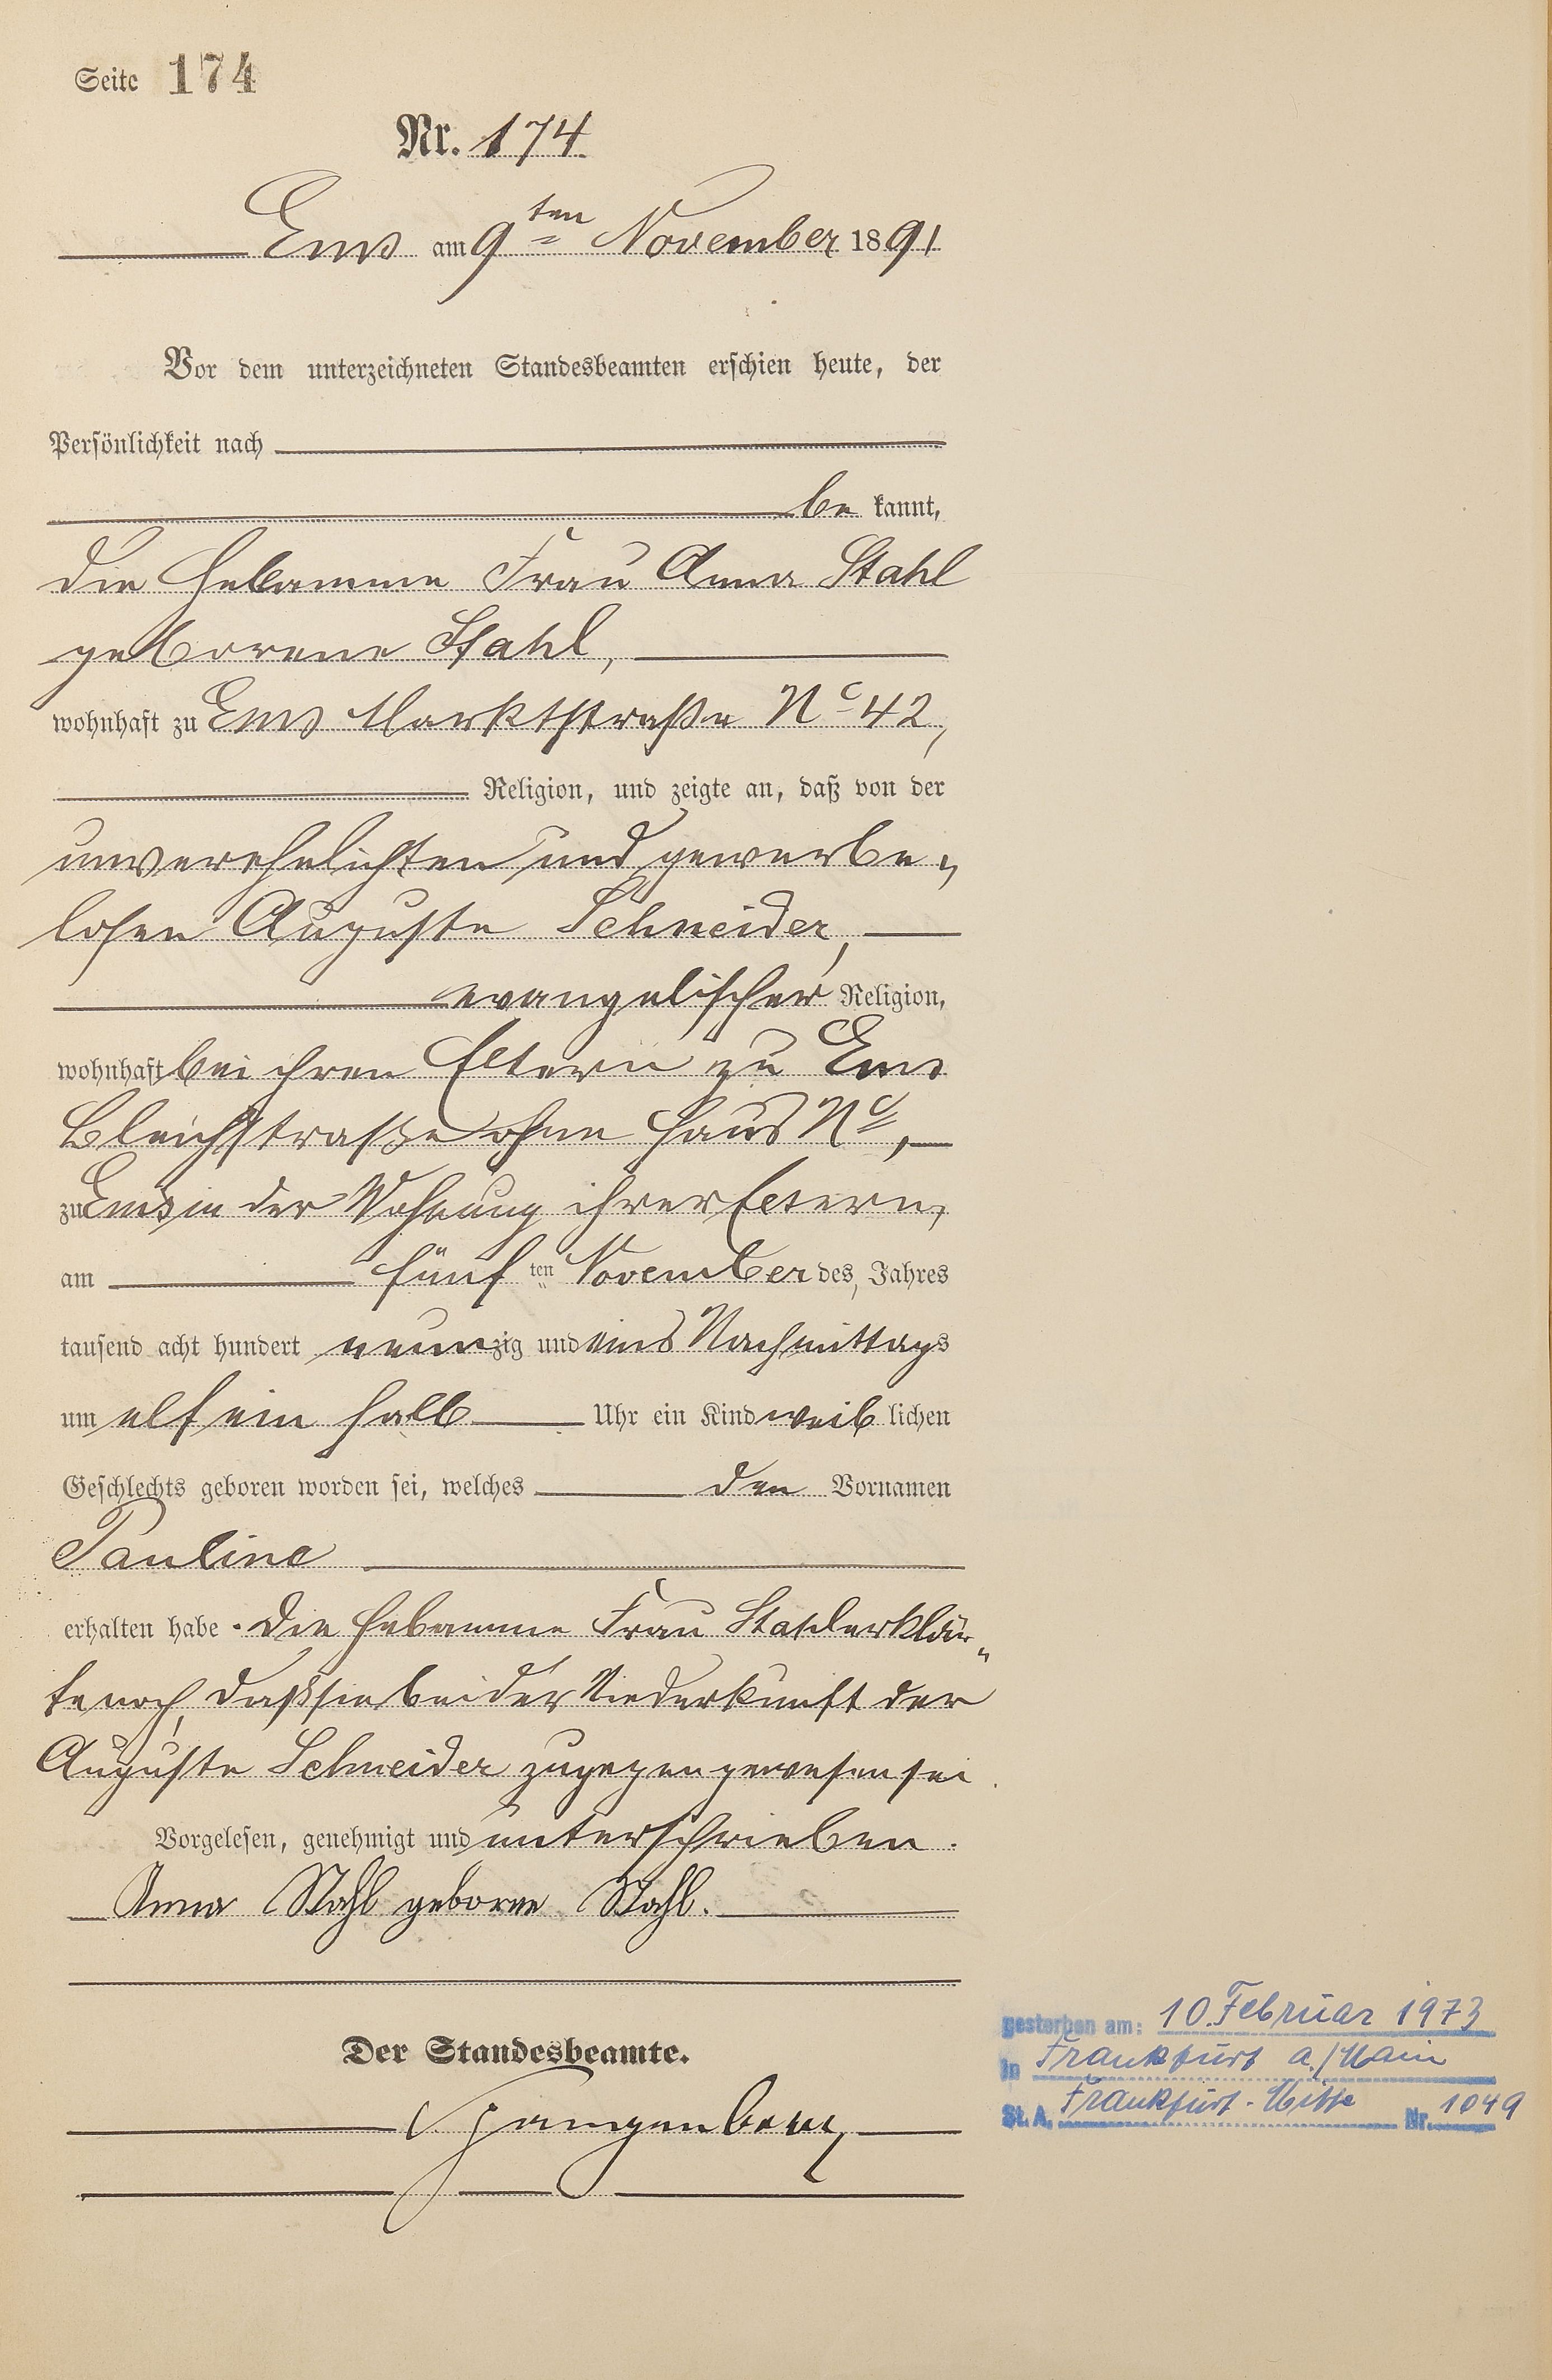 Seite 174
Nr. 174
Ems am 9ten November 1891
Vor dem unterzeichneten Standesbeamten erschien heute, der
Persönlichkeit nach
be kannt,
die Hebamme Frau Anna Stahl
geborene Stahl,
wohnhaft zu Ems Marktstraße No 42,
Religion, und zeigte an, daß von der
unverehelichten und gewerbe„
losen Auguste Schneider,
evangelischer Religion,
wohnhaft bei ihren Eltern zu Ems
Bleichstraße ohne Haus No,
zu Ems in der Wohnung ihrer Eltern,
am fünf ten November des Jahres
tausend acht hundert neunzig und eins Nachmittags
um elf ein halb Uhr ein Kind weib lichen
Geschlechts geboren worden sei, welches den Vornamen
Pauline
erhalten habe. Die Hebamme Frau Stahl erklär„
te noch, daß sie bei der Niederkunft der
Auguste Schneider zugegen gewesen sei.
Vorgelesen, genehmigt und unterschrieben.
Anna Stahl geborne Stahl.
Der Standesbeamte.
Spangenberg
gestorben am: 10. Februar 1973
in Frankfurt a./Main
St. A. Frankfurt-Mitte Nr. 1049